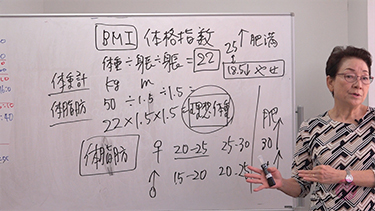 BMI 体格指数
体重÷身長÷身長=22
25↑肥満
18.5↓やせ
体重計 kg m
体脂肪 50÷1.5÷1.5=
22×1.5×1.5=理想体重
体脂肪 ♀ 20-25 25-30 30↑
肥
♂ 15-20 20-25